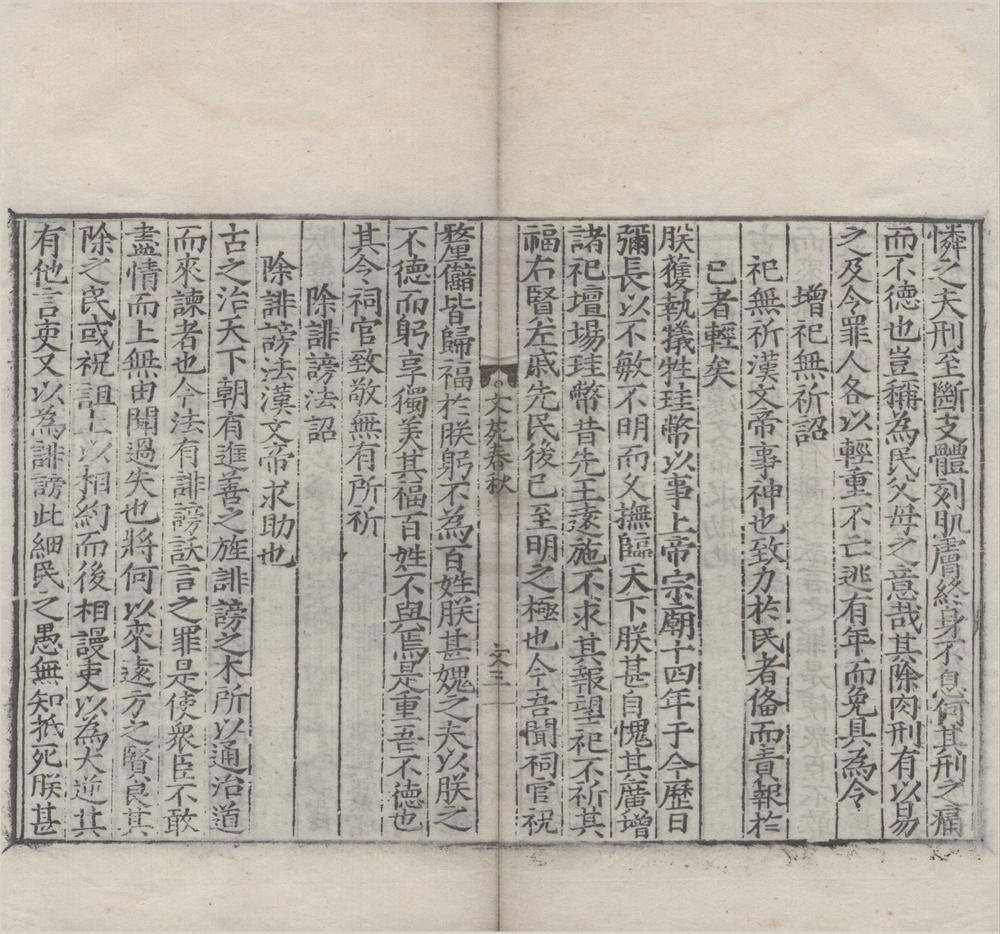 憐之夫刑至斷支體刻肌膚終身不息何其刑之痛
而不德也豈稱為民父母之意哉其除肉刑有以易
之及令罪人各以輕重不亡逃有年而免具為令
增祀無祈詔
祀無祈漢文帝事神也致力於民者俻而責報於
已者輕矣
朕獲執犧牲珪幣以事上帝宗廟十四年于今歷日
彌長以不敏不明而久撫臨天下朕甚自愧其廣增
諸祀壇場珪幣昔先王遠施不求其報望祀不祈其
福右賢左戚先民後已至明之極也今吾聞祠官祝
文苑春秋
文三
釐皆歸福於朕躬不為百姓朕甚媿之夫以朕之
不德而躬享獨美其福百姓不與焉是重吾不德也
其令祠官致敬無有所祈
除誹謗法詔
除誹謗法漢文帝求助也
古之治天下朝有進善之旌誹謗之木所以通治道
而來諫者也今法有誹謗訞言之罪是使衆臣不敢
盡情而上無由聞過失也將何以來遠方之賢良其
除之民或祝詛上以相約而後相謾吏以為大逆其
有他言吏又以為誹謗此細民之愚無知抵死朕甚